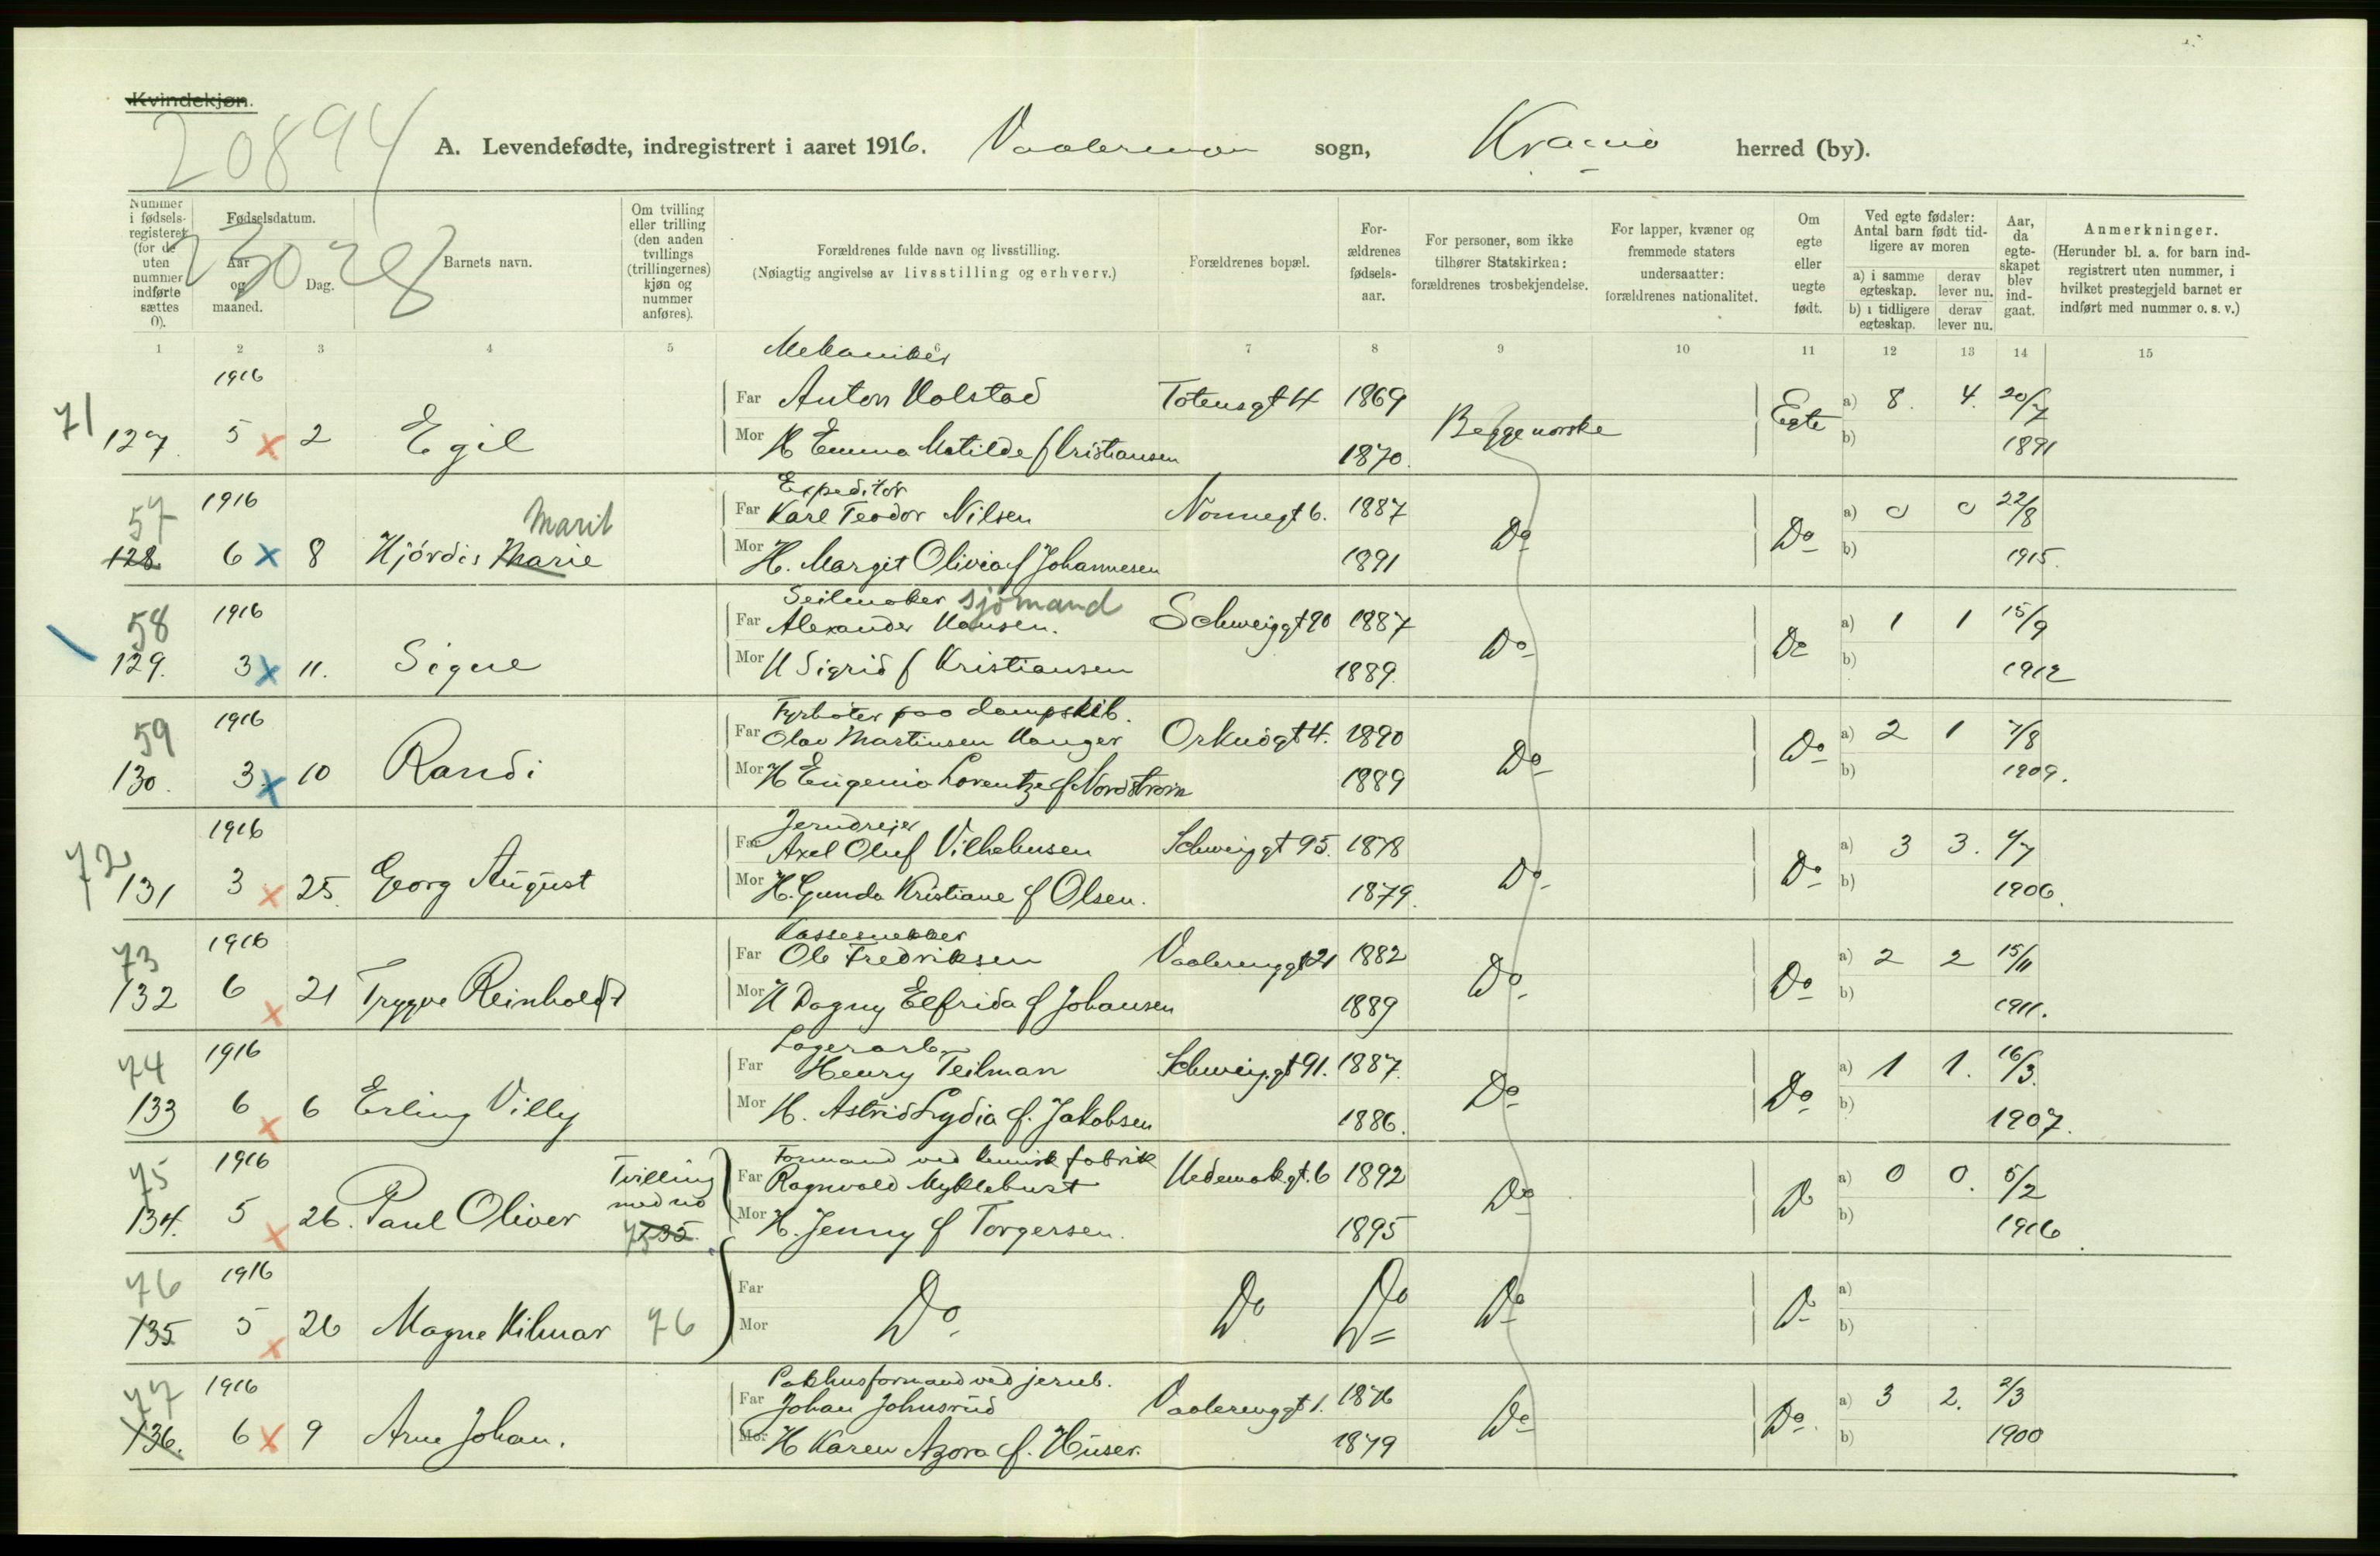 Kvindekjøn.
20894
A. Levendefødte, indregistrert i aaret 1916. Vaalerengen sogn, Kr.ania herred (by).
23028
Nummer i fødsels-registeret (for de uten nummer indførte sættes 0).
Fødselsdatum.
Aar og maaned.
Dag.
Barnets navn.
Om tvilling eller trilling (den anden tvillings (trillingernes) kjøn og nummer anføres).
Forældrenes fulde navn og livsstilling.
(Nøiagtig angivelse av livsstilling og erhverv.)
Forældrenes bopæl.
For-ældrenes fødsels-aar.
For personer, som ikke tilhører Statskirken: forældrenes trosbekjendelse.
For lapper, kvæner og fremmede staters undersaatter: forældrenes nationalitet.
Om egte eller uegte født.
Ved egte fødsler: Antal barn født tid-ligere av moren
a) i samme egteskap.
derav lever nu.
b) i tidligere egteskap.
derav lever nu.
Aar, da egte-skapet blev ind-gaat.
Anmerkninger.
(Herunder bl. a. for barn ind-registrert uten nummer, i hvilket prestegjeld barnet er indført med nummer o. s. v.)
1 2 3 4 5 6 7 8 9 10 11 12 13 14 15
Mekaniker
1916
71 Far Anton Holstad Totensgt 4 1869 a) 8. 4. 20/7
127. 5 x 2 Egil Mor H Emma Matilde f Kristiansen 1870. Begge norske Egte b) 1891
Expeditør
57 1916 Marit Far Karl Teodor Nilsen Nonnegt 6. 1887 a) 0 0 22/8
128 6 x 8 Hjórdis Marie Mor H. Margit Olivia f Johannesen 1891 Do Do b) 1915.
Seilmaker sjømand
58 1916 Far Alexander Hansen. Schweiggt 90 1887 a) 1 1 15/9
129. 3 x 11. Signe Mor H Sigrid f Kristiansen 1889. Do Do b) 1912
Fyrbøter paa dampskib.
59 1916 Far Olav Martinsen Hanger Orknögt 4. 1890 a) 2 1 7/8
130. 3. x 10 Randi Mor H Eugenia Lorentze f Nordstrøm 1889 Do Do b) 1909.
Jerndreier
72 1916 Far Axel Oluf Vilhelmsen Schweiggt 95. 1878 a) 3 3. 4/7
131 3 x 25. Georg August Mor H. Gunda Kristiane f Olsen. 1879. Do Do b) 1906.
Kassesnekker
73 1916 Far Ole Fredriksen Vaalerenggt 21 1882 a) 2 2 15/11
132 6 x 21 Trygve Reinholdt Mor H Dagny Elfrida f Johansen 1889 Do Do b) 1911.
Lagerarb.
74 1916 Far Henry Teilman Schweig.gt 91. 1887. a) 1 1. 16/3.
133 6 x 6 Erling Villy Mor H. Astrid Lydia f. Jakobsen 1886. Do Do b) 1907.
Formand ved kemisk fabrik
75 1916 Tvilling med no Far Ragnvald Myklebust Hedemak.gt. 6 1892 a) 0 0. 5/2
134. 5 x 26. Paul Oliver 135. 75 Mor H. Jenny f Torgersen. 1895 Do Do b) 1916.
76 1916 Far a)
135 5 x 26 Magne Hilmar 76 Mor Do Do Do Do Do b)
Pakhusformand ved jernb.
77 1916 Far Johan Johnsrud Vaalerenggt 1. 1876 a) 3 2. 2/3
136. 6 x 9 Arne Johan. Mor H Karen Azora f. Huser. 1879 Do Do b) 1900